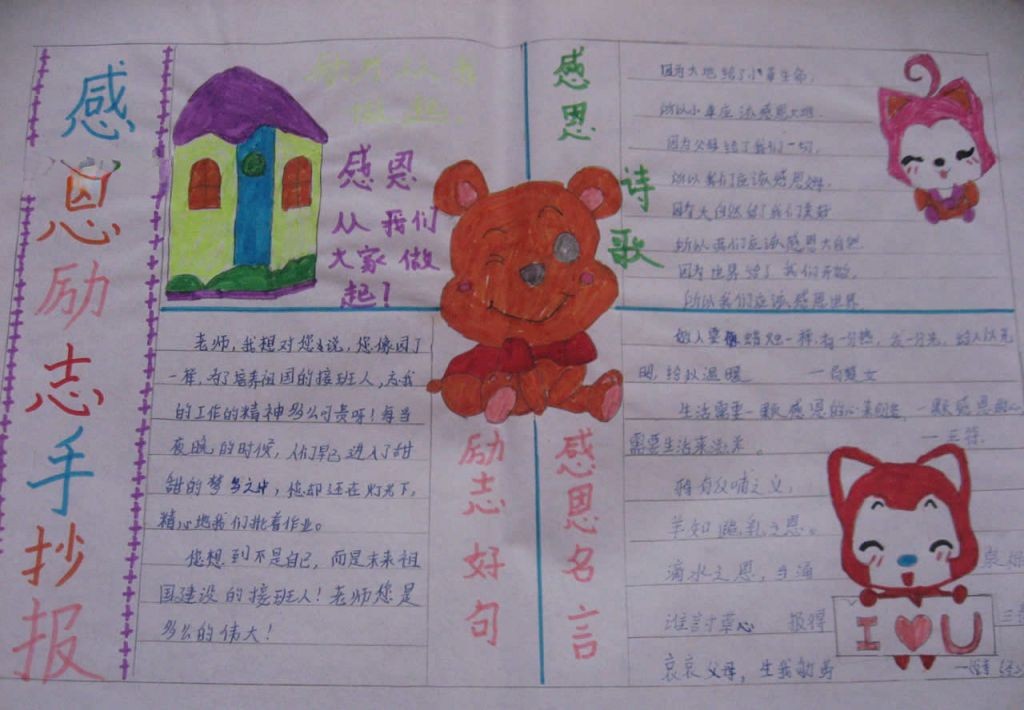 感恩励志手抄报
感恩
从我们
大家做
起！
老师，我想对您说，您像园丁
一样，为了培养祖国的接班人，
的工作的精神多么可贵呀！每当
夜晚的时候，人们早已进入了甜
甜的梦乡之中，您却还在灯光下，
精心地我们批着作业。
您想到不是自己，而是未来祖
国建设的接班人！老师您是
多么的伟大！
感恩诗歌
因为大地给了小草生命，
所以小草应该感恩大地。
因为父母给了我们一切，
所以我们应该感恩父母。
因为大自然给了我们美好
所以我们应该感恩大自然
因为世界给了我们开始，
所以我们应该感恩世界
励志好句
感恩名言
做人要像蜡烛一样，有一分热，发一分光，给人以光
明，给以温暖
生活需要一颗感恩的心来创造，一颗感恩的心
需要生活来滋养。
鸦有反哺之义，
羊知跪乳之恩。
滴水之恩，当涌
泉
报得三
哀哀父母，生我劬劳
I U